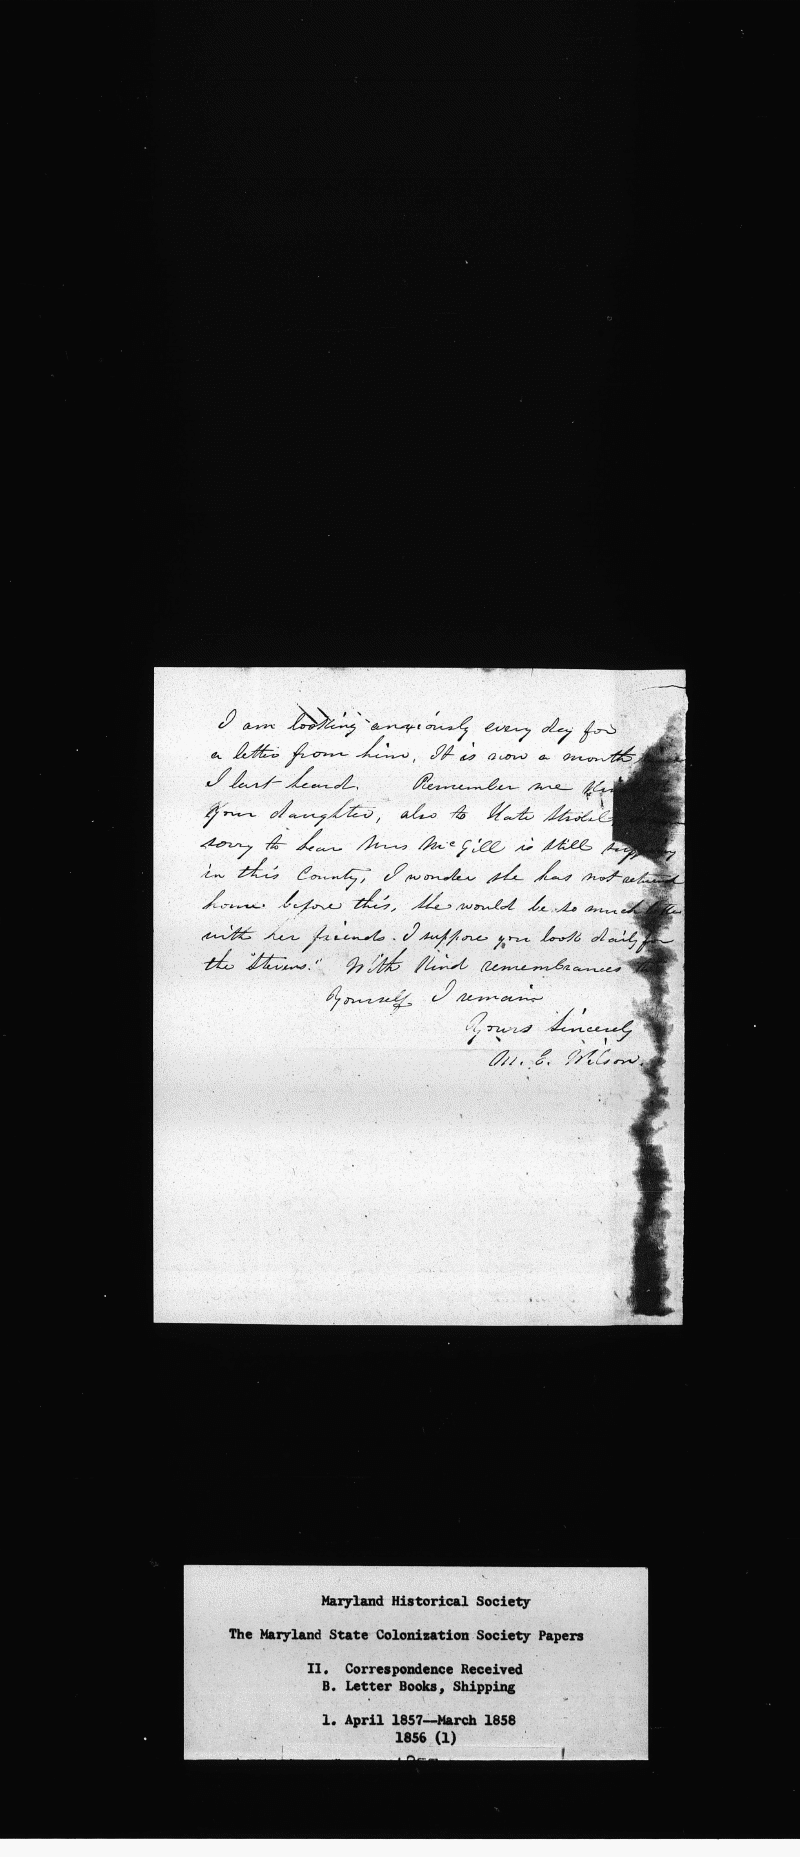 I am looking anxiously every day for
a letter from him. It is now a month
I last heard. Remember me
your daughter, also to Kate
sorry to hear Mrs McGill is still
in this County, I wonder she has not
home before this, She would be so much
with her friends. I suppose you look daily for
the "Stevens." With Kind remembrances
Yourself I remain
Yours Sincerely
M. E. Wilson.
Maryland Historical Society
The Maryland State Colonization Society Papers
II. Correspondence Received
B. Letter Books, Shipping
1. April 1857--March 1858
1856 (1)